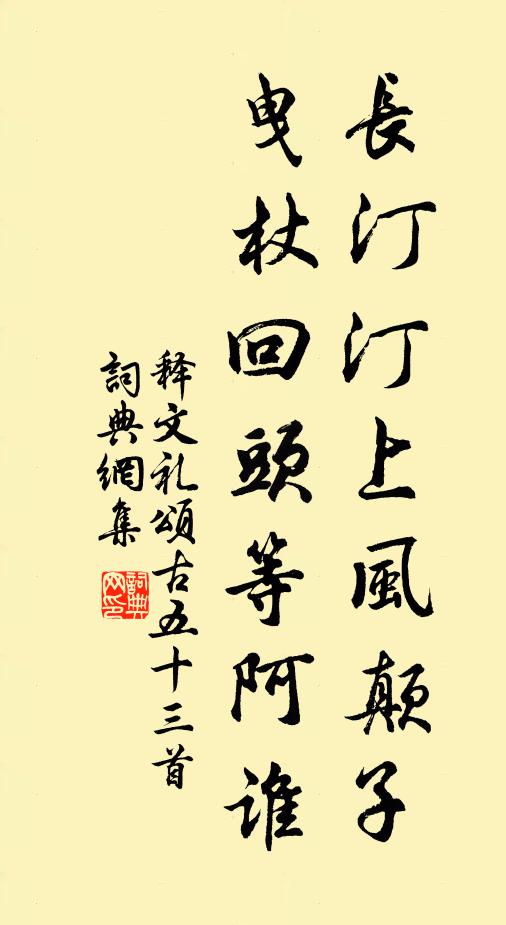 長汀汀上風顛子
曳杖回頭等阿誰
释文礼頌古五十三首
詞典網集
詞典网印